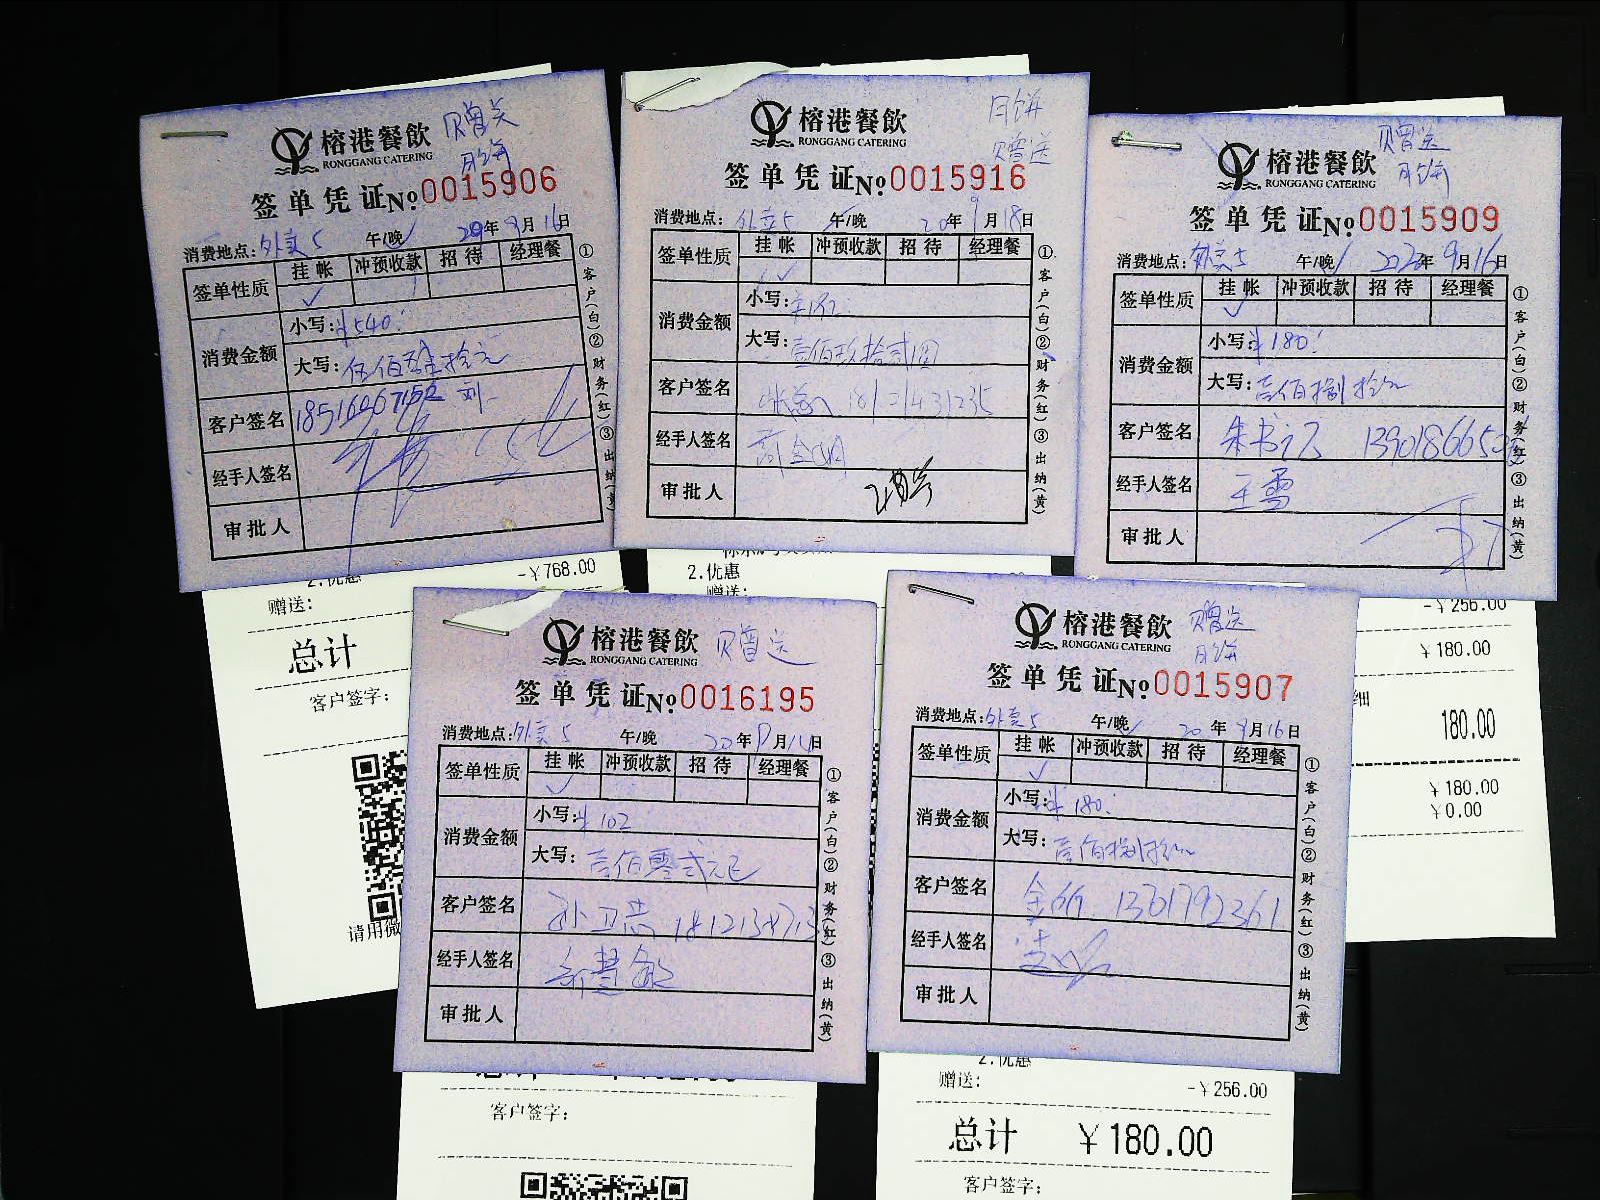 榕港餐飲
RONGGANG CATERING
赠送
月饼
签单凭证 No 0015906
消费地点: 外卖5 午/晚 20年9月16日
签单性质 挂帐 冲预收款 招待 经理餐
消费金额
小写: ¥540.
大写: 伍佰肆拾元
客户签名 刘
经手人签名
审批人
①客户(白)②财务(红)③出纳(黄)
榕港餐飲
RONGGANG CATERING
月饼
赠送
签单凭证 No 0015916
消费地点: 外卖5 午/晚 20年9月18日
签单性质 挂帐 冲预收款 招待 经理餐
消费金额
小写:
大写: 壹佰玖拾贰圆
客户签名
经手人签名
审批人
①客户(白)②财务(红)③出纳(黄)
榕港餐飲
RONGGANG CATERING
赠送
月饼
签单凭证 No 0015909
消费地点: 外卖5 午/晚 2020年9月16日
签单性质 挂帐 冲预收款 招待 经理餐
消费金额
小写: ¥180.
大写: 壹佰捌拾元
客户签名
经手人签名 王雪
审批人
①客户(白)②财务(红)③出纳(黄)
2.优惠
赠送: -¥768.00
总计
客户签字:
请用微
2.优惠
赠送:
-¥256.00
¥180.00
细
180.00
¥180.00
¥0.00
榕港餐飲
RONGGANG CATERING
赠送
签单凭证 No 0016195
消费地点: 外卖5 午/晚 20年9月14日
签单性质 挂帐 冲预收款 招待 经理餐
消费金额
小写: ¥102
大写: 壹佰零贰元正
客户签名
经手人签名
审批人
①客户(白)②财务(红)③出纳(黄)
客户签字:
榕港餐飲
RONGGANG CATERING
赠送
月饼
签单凭证 No 0015907
消费地点: 外卖5 午/晚 20年9月16日
签单性质 挂帐 冲预收款 招待 经理餐
消费金额
小写: ¥180.
大写: 壹佰捌拾元
客户签名 1361792361
经手人签名
审批人
①客户(白)②财务(红)③出纳(黄)
2.优惠
赠送: -¥256.00
总计 ¥180.00
客户签字: